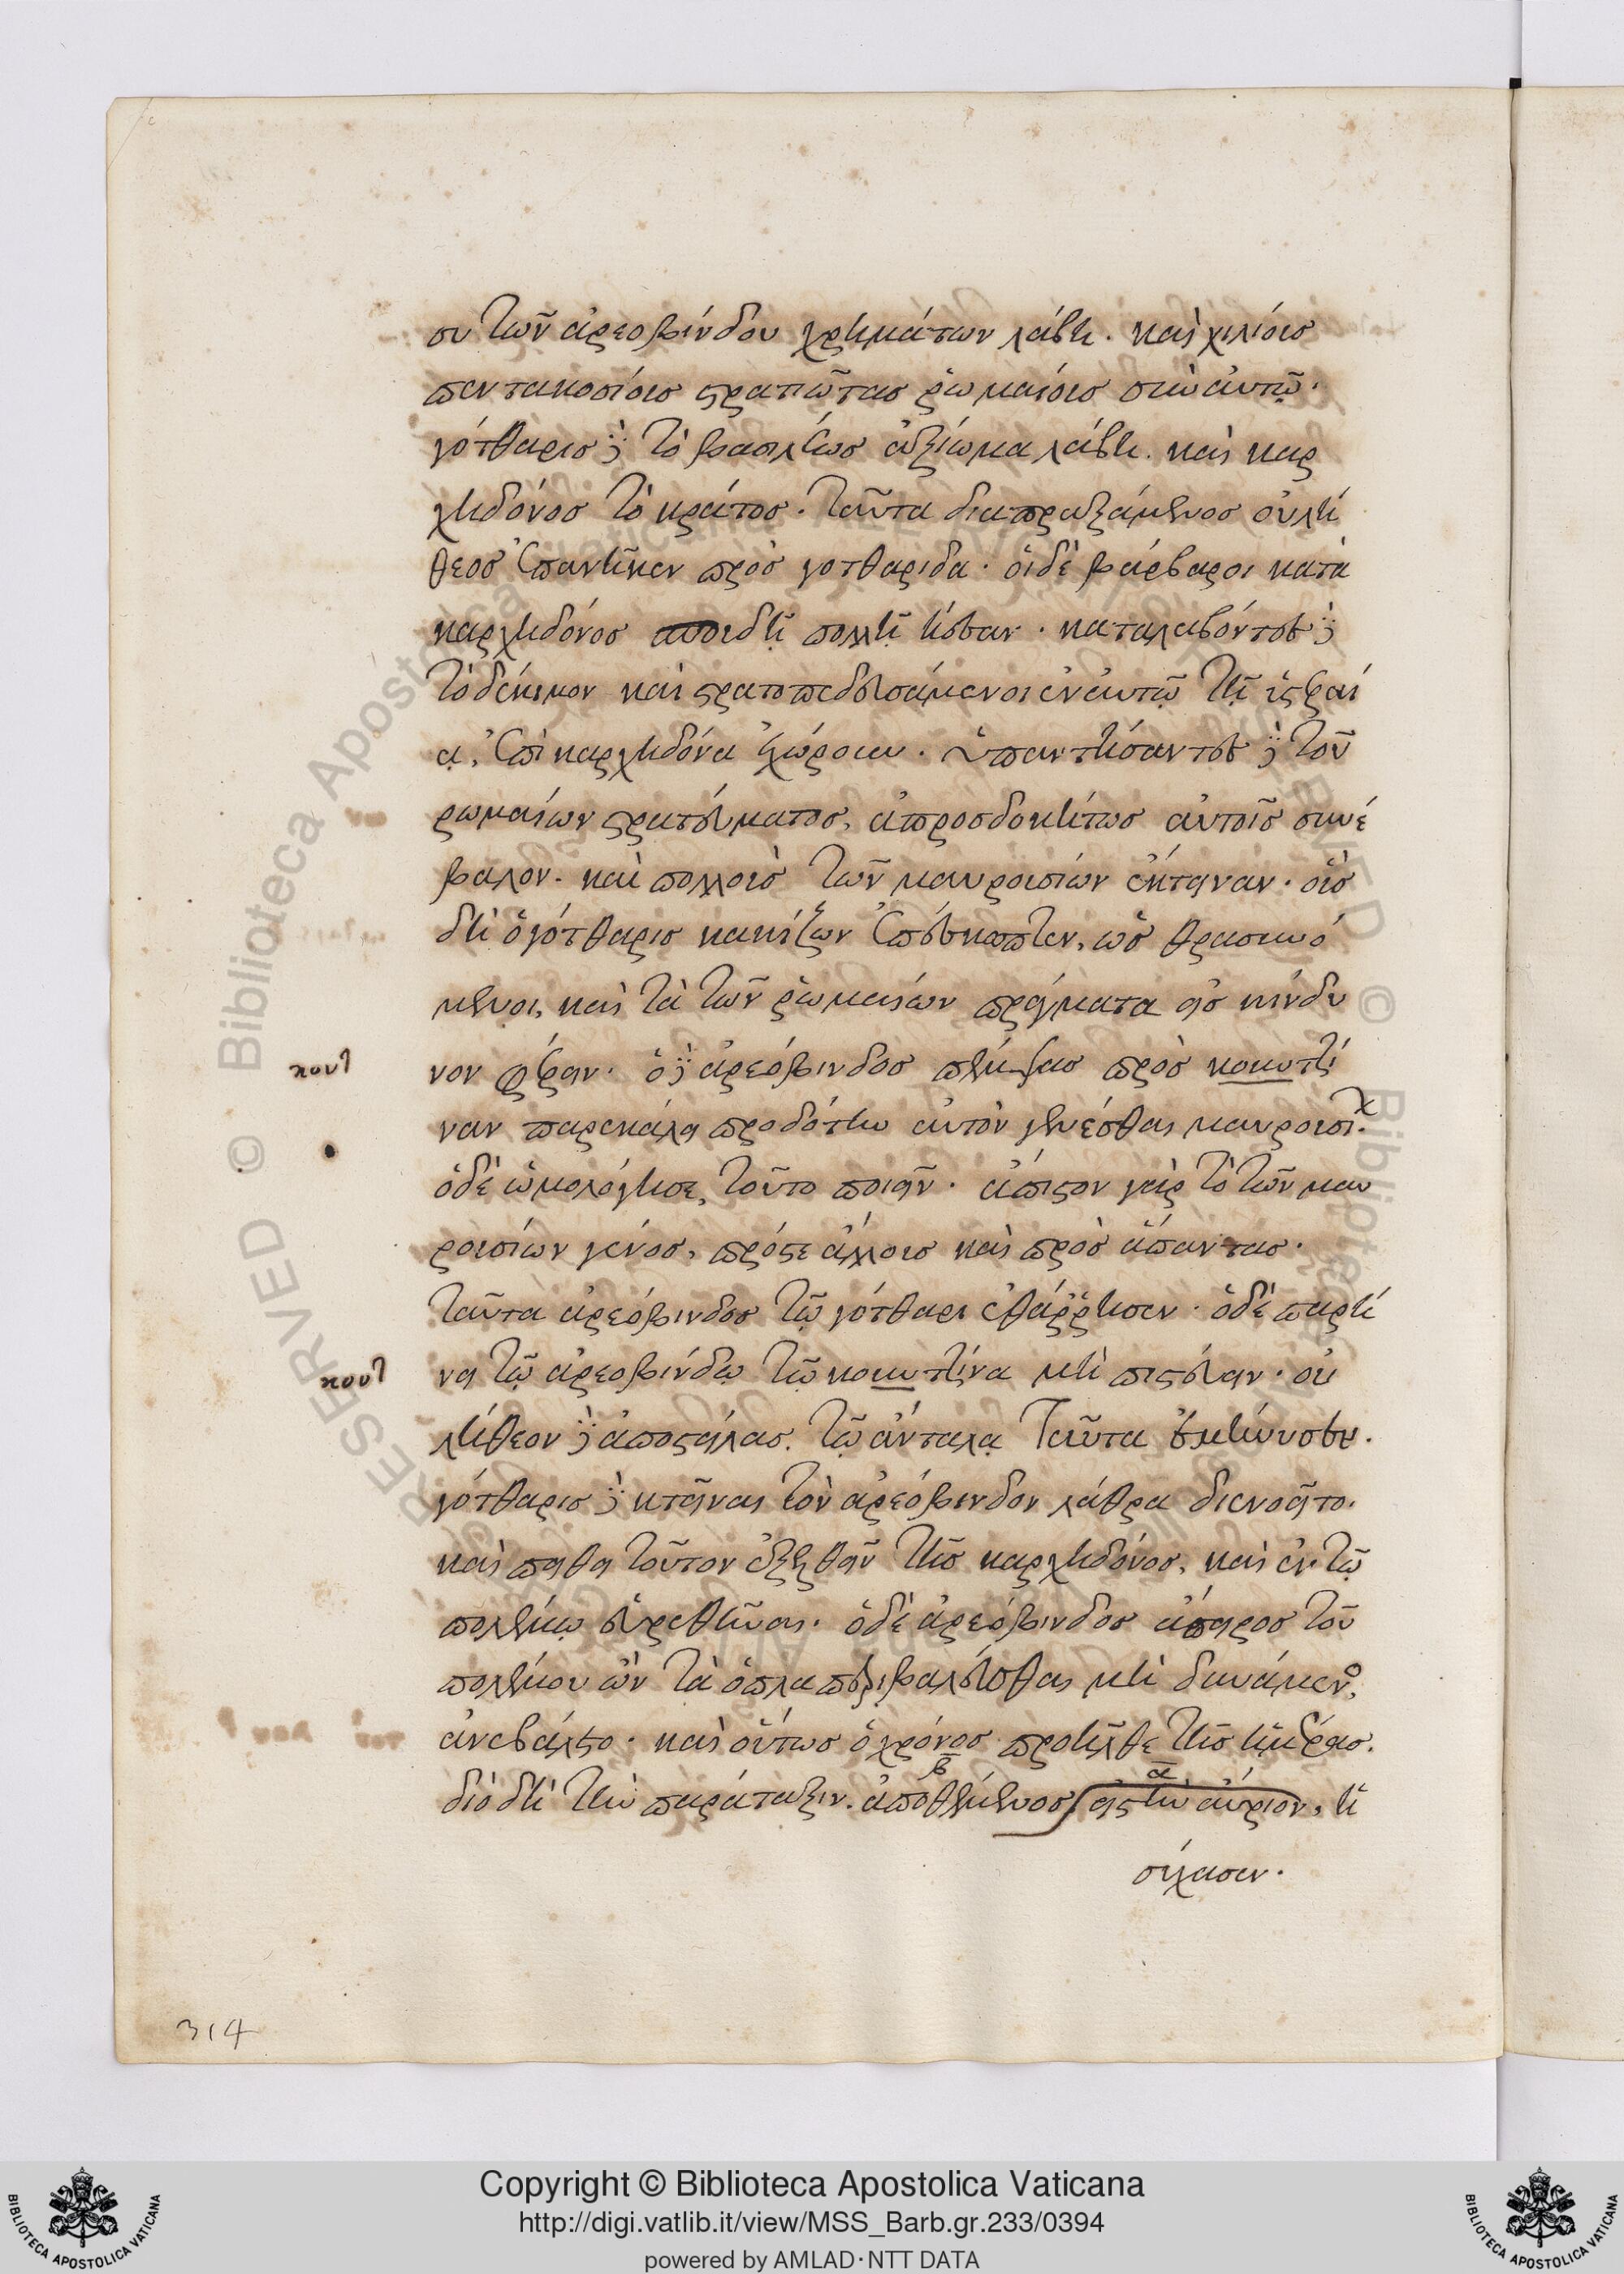 συ τῶν ἀρεοβίνδου χρημάτων λάβη. καὶ χιλίους
πεντακοσίους στρατιῶτας ῥωμαίους σὺν αὐτῷ.
γότθαρις δὲ τὸ βασιλέως ἀξίωμα λάβη. καὶ καρ
χηδόνος τὸ κράτος. ταῦτα διαπραξάμενος οὐλί
θεος ἐπανῆκεν πρὸς γοτθαριδα. οἱ δὲ βάρβαροι κατὰ
καρχηδόνος σπουδῇ πολλῇ ᾔεσαν. καταλαβόντες δὲ
τὸ δέκιμον καὶ στρατοπεδευσάμενοι ἐν αὐτῷ τῇ ὑστεραί
ᾳ, ἐπὶ καρχηδόνα ἐχώρουν. ὑπαντήσαντες δὲ τοῦ
ρωμαίων στρατεύματος, ἀπροσδοκήτως αὐτοῖς συνέ
βαλον. καὶ πολλοὺς τῶν μαυρουσίων ἔκτειναν. οὓς
δὴ ὁ γότθαρις κακίζων ἐπέσκωπτεν, ὡς θρασυνό
μενοι, καὶ τὰ τῶν ῥωμαίων πράγματα εἰς κίνδυ
κουτ νον φέρειν. ὁ δὲ ἀρεόβινδος πέμψας πρὸς κουτζί
ναν παρεκάλει προδότην αὐτὸν γενέσθαι μαυρουσι.
ὁ δὲ ὡμολόγησε, τοῦτο ποιεῖν. ἄπιστον γὰρ τὸ τῶν μαυ
ρουσίων γένος, πρός τε ἀλλους καὶ πρὸς ἅπαντας.
ταῦτα ἀρεόβινδος τῷ γότθαρι ἐθάρρησεν. ὁ δὲ παρῄ
κουτ νει τῷ ἀρεοβίνδῳ τῷ κουτζίνα μὴ πιστεύειν. οὐ
λίθεον δὲ ἀποστείλας. τῷ ἀνταλᾳ ταῦτα ἐμήνυσεν.
γότθαρις δὲ κτεῖναι τὸν ἀρεόβινδον λάθρα διενοεῖτο.
καὶ πείθει τοῦτον ἐξελθεῖν τῆς καρχηδόνος, καὶ ἐν τῷ
πολέμῳ εὑρεθῆναι. ὁ δὲ ἀρεόβινδος ἄπειρος τοῦ
πολέμου ὢν τὰ ὅπλα περιβαλέσθαι μὴ δυνάμενος,
ἀνεβάλετο. καὶ οὕτως ὁ χρόνος προῆλθε τῆς ἡμέρας.
β α
διὸ δὴ τὴν παράταξιν. ἀποθέμενος εἰς τὴν αὔριον, ἡ
σύχασεν.
314
Copyright © Biblioteca Apostolica Vaticana
http://digi.vatlib.it/view/MSS_Barb.gr.233/0394
powered by AMLAD·NTT DATA
BIBLIOTECA APOSTOLICA VATICANA
BIBLIOTECA APOSTOLICA VATICANA